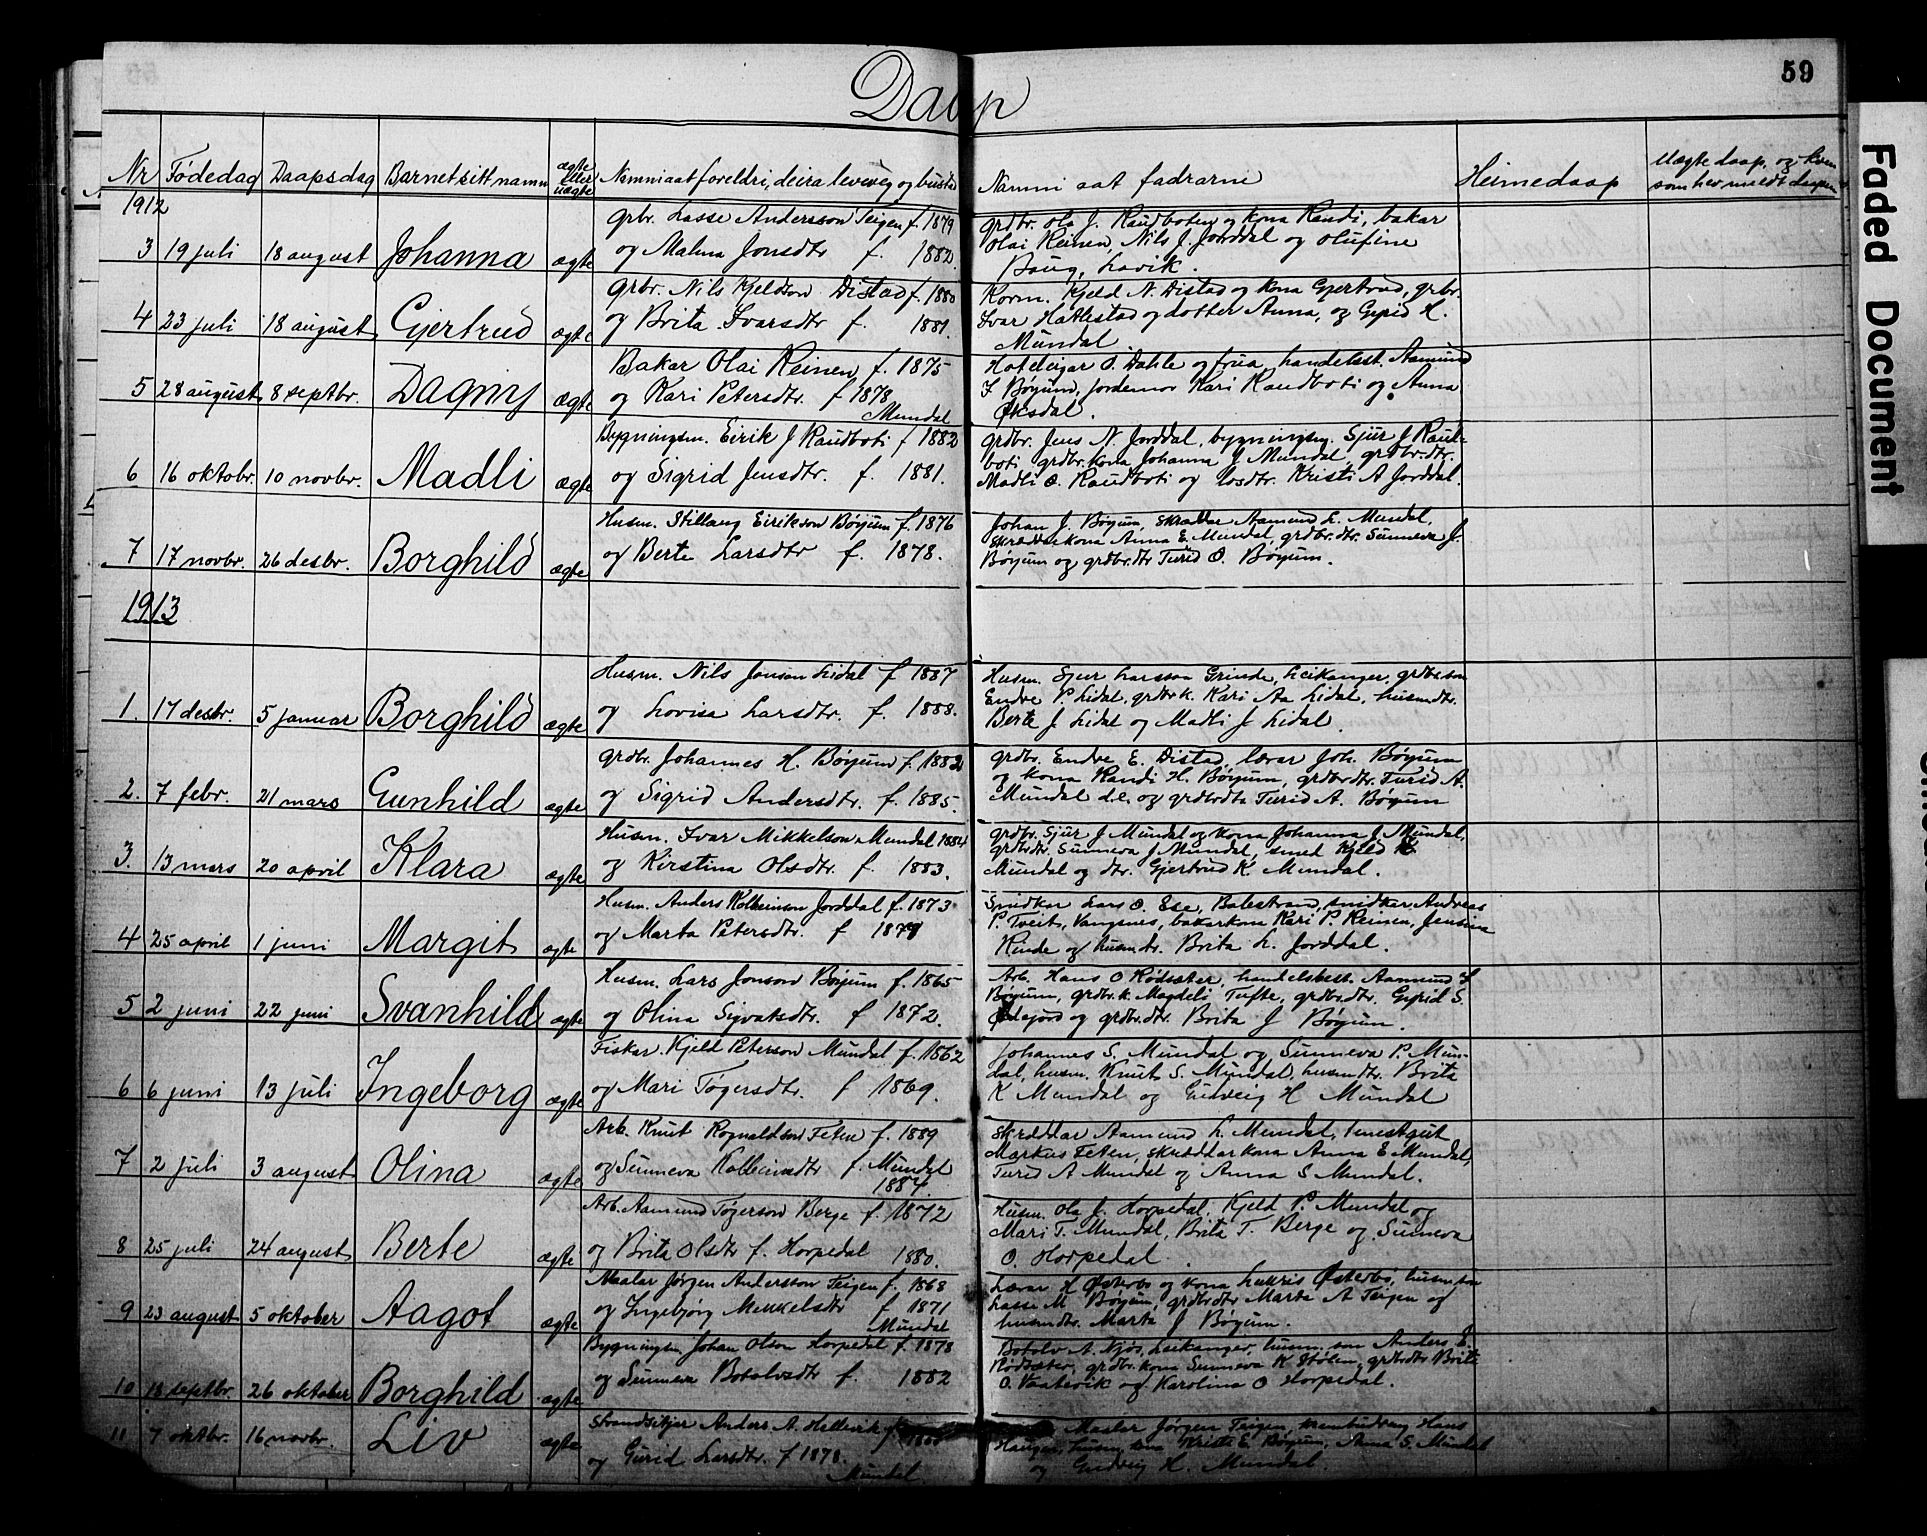 59
Daap
Nr Fødedag Daapsdag Barnet sitt namn ægte eller uægte Namni aat foreldri, deira leveveg og bustad Namni aat fadrarne Heimedaap Uægte daap, og kven som hev meldt daapen
1912
3 19 juli 18 august Johanna ægte
grbr. Lasse Andersson Teigen f. 1879
og Malena Jonsdtr f. 1882.
grdbr. Ola J. Raudboten og kona Randi, bakar
Olai Reinen, Nils J. Jorddal og Olufine
Baug, Lavik.
4 23 juli 18 august Gjertrud ægte
Grbr. Nils Kjeldson Distad f. 1880
og Brita Ivarsdtr f. 1881.
Korm. Kjeld N. Distad og kona Gjertrud, grbr.
Ivar Hatlestad og dotter Anna, og Gyrid H.
Mundal
5 28 august 8 septbr. Dagny ægte
Bakar Olai Reinen f. 1875
og Kari Petersdtr. f 1878
Mundal
Hoteleigar O. Dahle og frua, handelsst. Aamund
I Bøyum, jordemor Kari Raudboti og Anna
Øksdal.
6 16 oktobr. 10 novbr. Madli ægte
Bygningsm. Eirik J Raudboti f 1882
og Sigrid Jensdtr. f. 1881.
grdbr. Jens N. Jorddal, bygningsm. Sjur J Raud-
boti grdbr. kona Johanna J. Mundal, grdbr.dtr.
Madli O. Raudboti og Kristi A Jorddal.
7 17 novbr. 26 desbr. Borghild ægte
Husm. Stillaug Eirikson Bøyum f. 1876
og Berte Larsdtr f. 1878.
Johan J. Bøyum, skræddar Aamund L. Mundal,
kona Anna E. Mundal, grdbr.dtr. Sunneva J.
Bøyum og grdbr.dtr Turid O. Bøyum.
1913
1. 17 desbr. 5 januar Borghild ægte
Husm. Nils Jonson Lidal f 1887
og Lovisa Larsdtr. f. 1888.
Husm. Sjur Larsson Grinde, Leikanger, grdbr.son
Endre P. Lidal, grdbr.k. Kari Aa Lidal, husm.dtr.
Berte J Lidal og Madli J Lidal.
2. 7 febr. 21 mars Gunhild ægte
grdbr. Johannes H. Bøyum f. 1882
og Sigrid Andersdtr. f. 1885.
grdbr. Endre E. Distad, lærar Joh. Bøyum
og kona Randi H. Bøyum, grdbr.dtr. Turid A.
Mundal d.e. og grdbrdtr Turid A. Bøyum
3. 13 mars 20 april Klara ægte
Husm. Ivar Mikkelson Mundal 1884
og Kirstina Olsdtr. f. 1883.
grdbr. Sjur J Mundal og kona Johanna J. Mundal,
grdbrdtr. Sunneva J Mundal, smed Kjeld K
Mundal og dtr. Gjertrud K Mundal.
4 25 april 1 juni Margit ægte
Husm. Anders Kolbeinson Jorddal f. 1873
og Marta Petersdtr. f
Snidkar Lars O. Ese, Balestrand, snidkar Andreas
P. Tveit, Vangsnes, bakarkona Kari P. Reinen, Jensina
Rinde og husm.dtr. Brita L. Jorddal.
5 2 juni 22 juni Svanhild ægte
Husm. Lars Jonson Bøyum f. 1865
og Olina Sigvatsdtr. f 1872.
Arb. Hans O Rødseter, handelsbest. Aamund I
Bøyum, grdbr.k. Magdeli Tufte, grdbr.dtr. Gyrid S.
og grdbr.dtr. Brita J Bøyum.
6 6 juni 13 juli Ingeborg ægte
Fiskar Kjeld Peterson Mundal f. 1862
og Mari Tøgersdtr. f 1869.
Johannes S. Mundal og Sunneva P. Mun-
dal, husm. Knut S. Mundal, husm.dtr. Brita
K Mundal og Gudveig H Mundal
7 2 juli 3 august Olina ægte
Arb. Knut Rognaldson Feten f. 1889
og Sunneva Kolbeinsdtr f. Mundal
1884.
Skræddar Aamund L. Mundal, tenestgut
Markus Feten, skræddarkona Anna E Mundal,
Turid A Mundal og Anna S Mundal.
8 25 juli 24 august Berte ægte
Arb. Aamund Tøgerson Berge f. 1872
og Brita Olsdtr f. Horpedal 1880.
Husm. Ola J. Horpedal, Kjeld P. Mundal og
Mari T. Mundal, Brita T. Berge og Sunneva
O. Horpedal.
9 23 august 5 oktober Aagot ægte
Maalar Jørgen Andersson Teigen f. 1868
og Ingebjørg Mikkelsdtr f 1871
Mundal
Lærar H Østerbø og kona Østerbø, husm.son
Lasse M Bøyum, grdbrdtr Marta A Teigen og
husmdtr. Marta J Bøyum.
10 18 septbr. 26 oktober Borghild ægte
Bygningsm. Johan Olson Horpedal f. 1878
og Sunneva Botolvsdtr f. 1882
Botolv A. Njøs, Leikanger, husm. son Anders E.
Rødseter, grdbr. kona Sunneva K Stølen, grdbrdtr Brita
O. Vaatevik og Karolina O Horpedal.
11 7 oktbr. 16 novbr. Liv ægte
Strandsitjar Anders A. Hellevik f
og Gurid Larsdtr. f 1878.
Mundal
Maalar Jørgen Teigen, Hans
Haugen, husm. kona Kristi E Bøyum, Anna S. Mundal
og Gudveig H. Mundal.
Faded Document